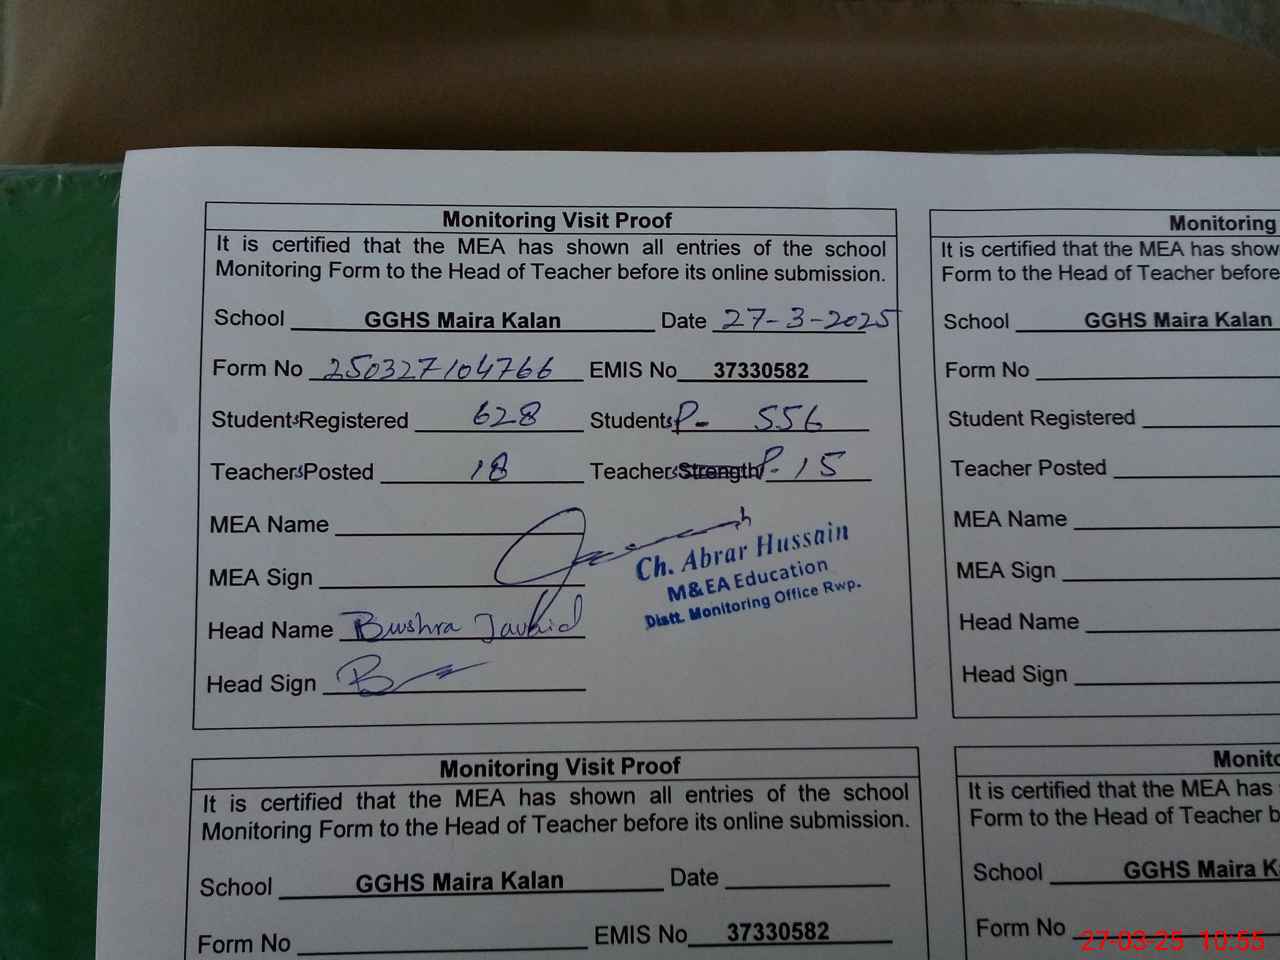 Monitoring Visit Proof
It is certified that the MEA has shown all entries of the school
Monitoring Form to the Head of Teacher before its online submission.
School GGHS Maira Kalan Date 27-3-2025
Form No 250327104766 EMIS No 37330582
Students Registered 628 Students P- 556
Teachers Posted 18 Teachers Strength P- 15
MEA Name
MEA Sign
Ch. Abrar Hussain
M&EA Education
Distt. Monitoring Office Rwp.
Head Name Bushra Javaid
Head Sign
Monitoring
It is certified that the MEA has show
Form to the Head of Teacher before
School GGHS Maira Kalan
Form No
Student Registered
Teacher Posted
MEA Name
MEA Sign
Head Name
Head Sign
Monitoring Visit Proof
It is certified that the MEA has shown all entries of the school
Monitoring Form to the Head of Teacher before its online submission.
School GGHS Maira Kalan Date
Form No EMIS No 37330582
Monito
It is certified that the MEA has
Form to the Head of Teacher b
School GGHS Maira K
Form No
27-03-25 10:55